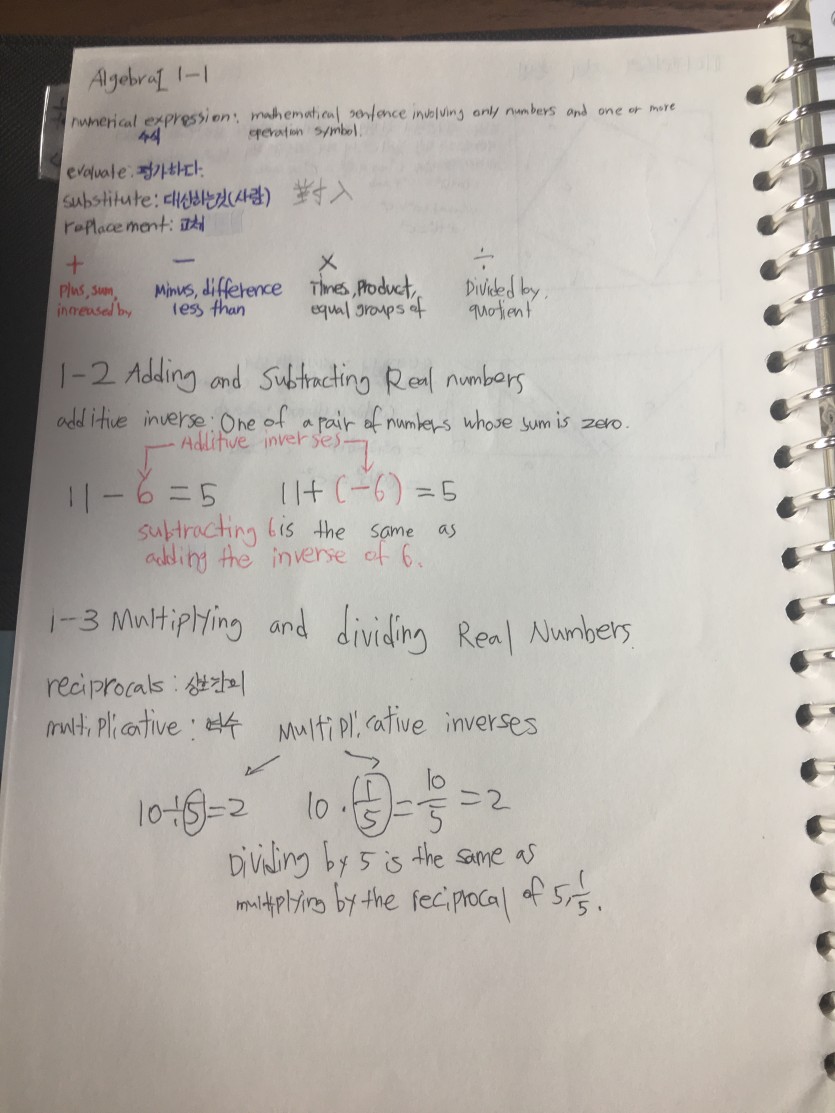 Algebra I 1-1
numerical expression: mathematical sentence involving only numbers and one or more
수식 operation symbol.
evaluate: 평가하다.
substitute: 대신하는것(사람) 대入
replacement: 교체
+ − × ÷
Plus, sum, Minus, difference Times, Product, Divided by.
increased by less than equal groups of quotient
1-2 Adding and Subtracting Real numbers
additive inverse: One of a pair of numbers whose sum is zero.
Additive inverses
11 − 6 = 5 11+ (−6) = 5
subtracting 6 is the same as
adding the inverse of 6.
1-3 Multiplying and dividing Real Numbers.
reciprocals: 상호간의
multiplicative: 역수 Multiplicative inverses
10÷5=2 10 · 1/5 = 10/5 = 2
Dividing by 5 is the same as
multiplying by the reciprocal of 5, 1/5.